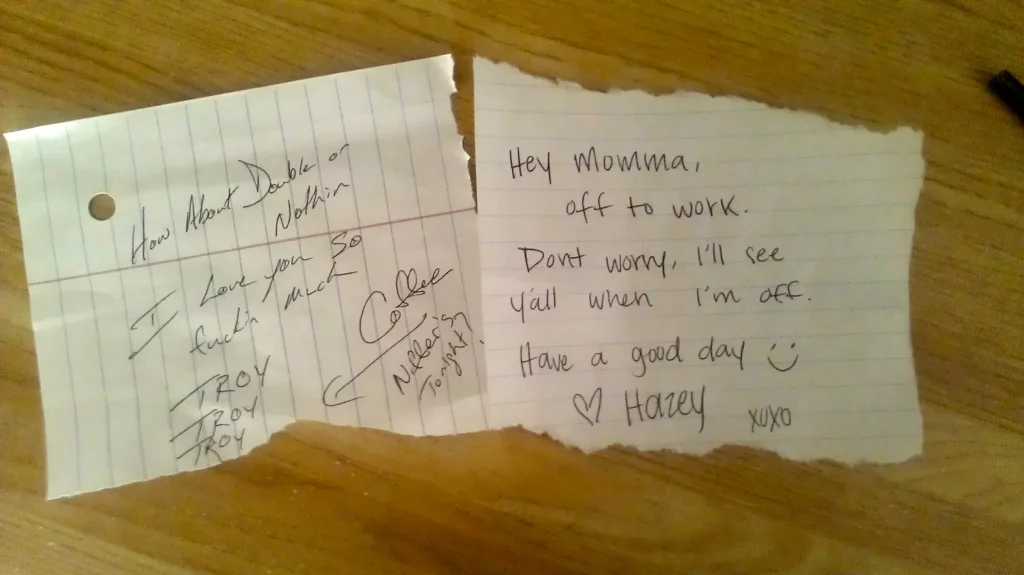 How About Double or
Nothin
I Love you So
fuckin much
Coffee
Tonight?
TROY
TROY
TROY
Hey Momma,
off to work.
Dont worry, I'll see
y'all when I'm off.
Have a good day
Hazey xoxo